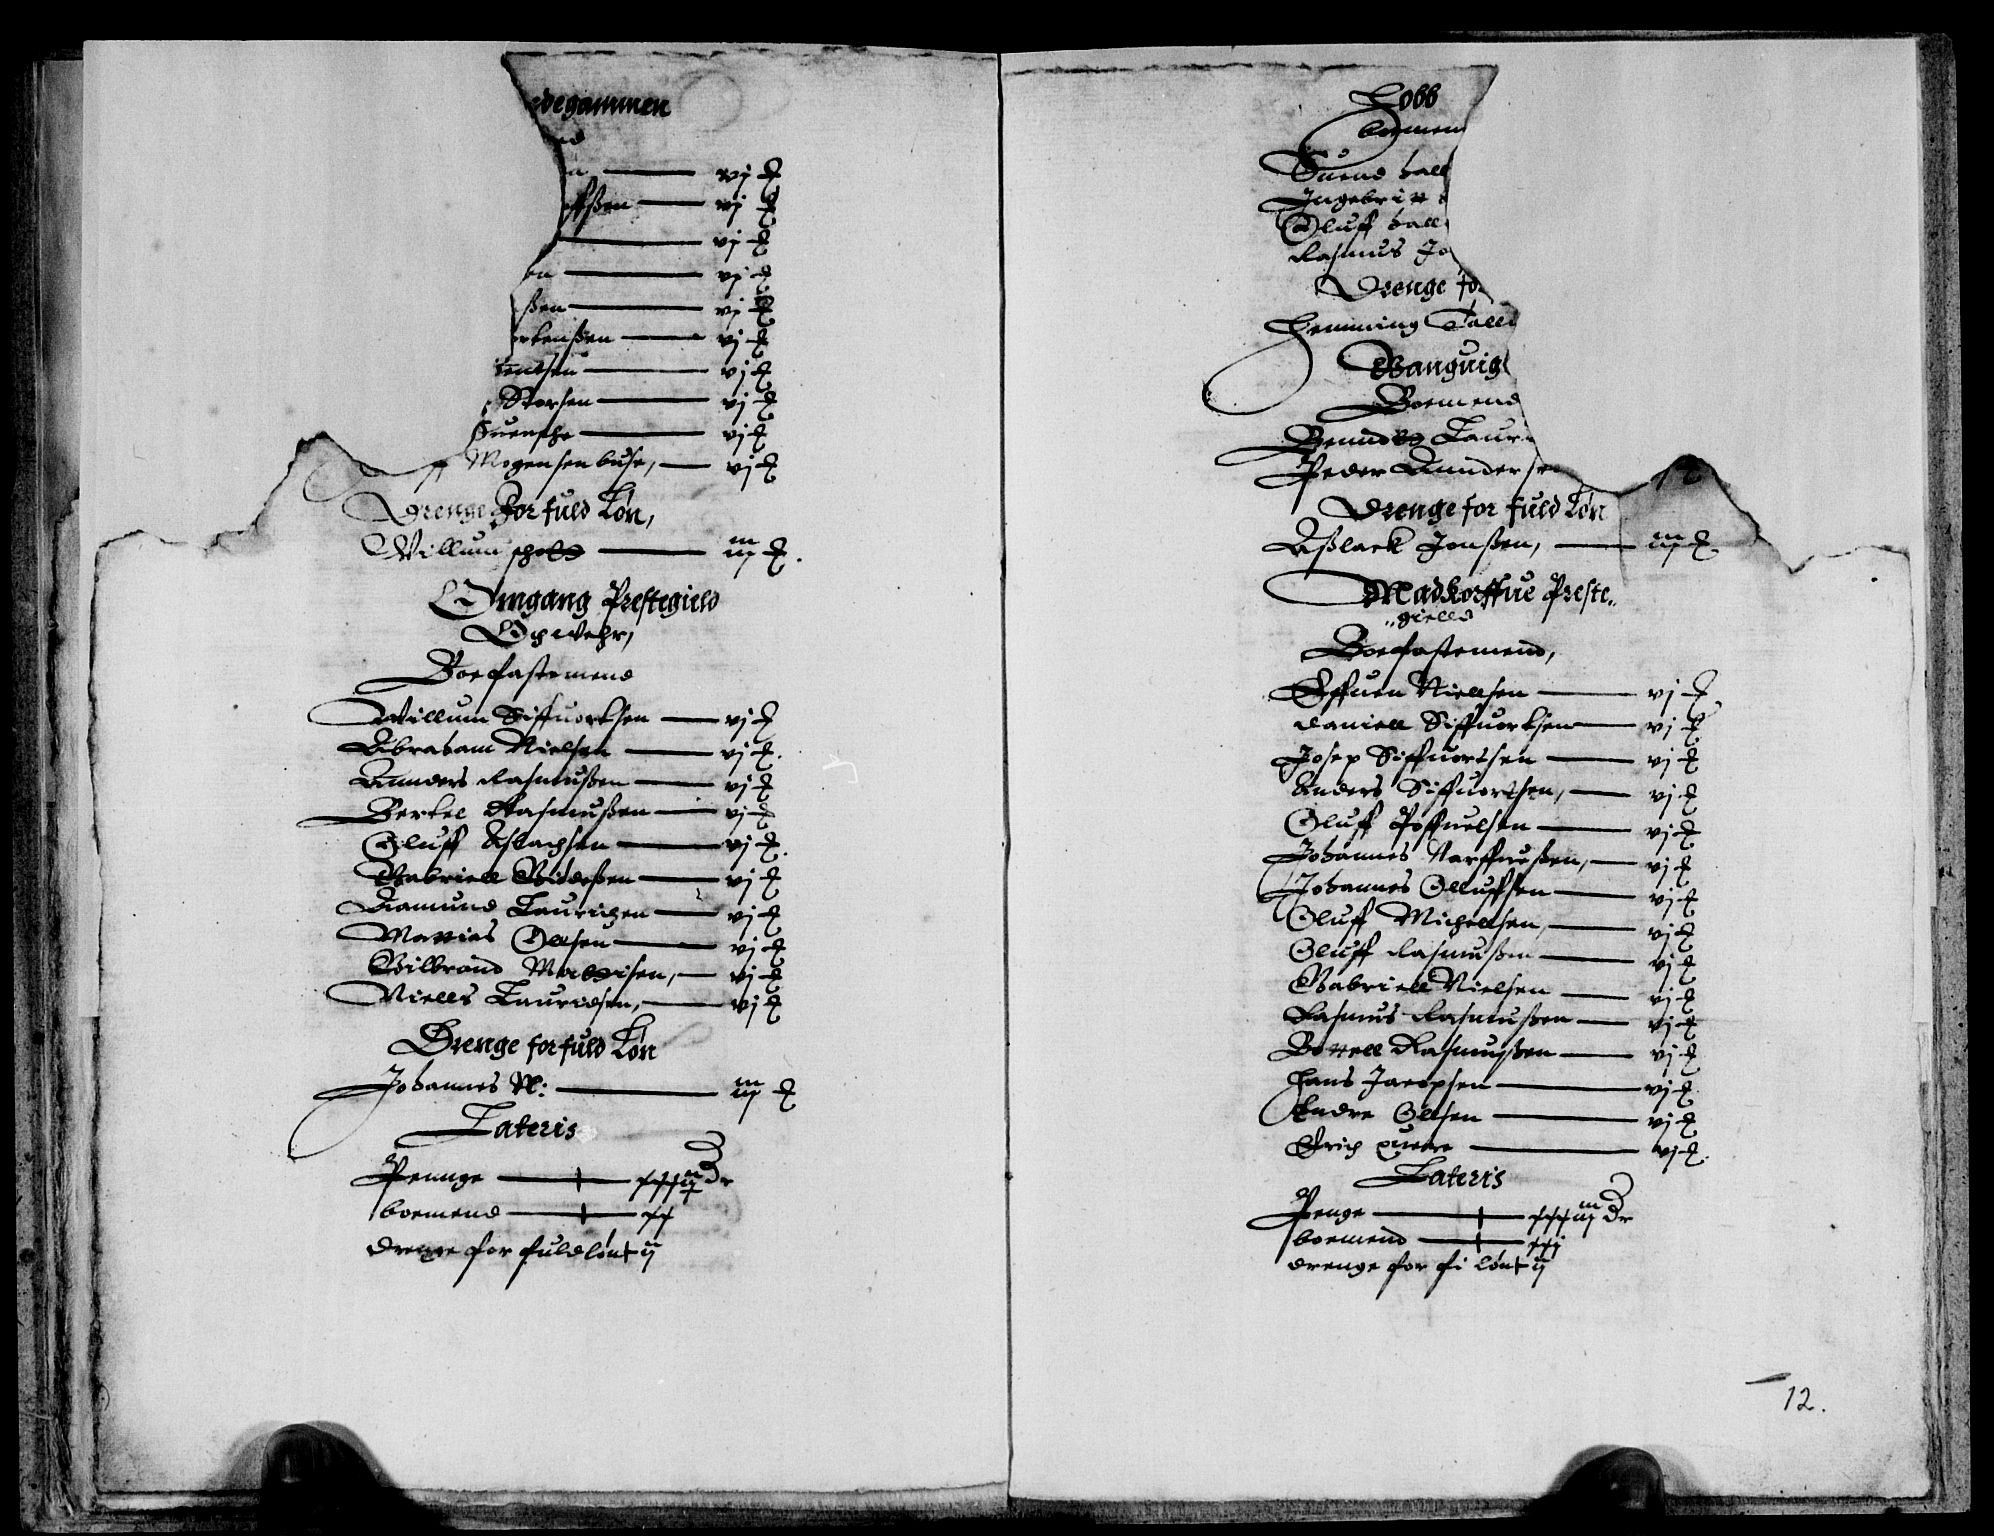 degammen
nd
n — vj ß
ffßen — vj ß
— vj ß
en — vj ß
ßen — vj ß
rkenßen — vj ß
entsen — vj ß
Storsen — vj ß
Suensche — vj ß
ff Mogensen buse, — vj ß
Drenge For fuld Løn,
Willum — iiij ß.
Omgang Prestegield
Boesastemend
Willum Siffuortsen — vj ß
Abraham Nielsen — vj ß.
Anders Rasmußen — vj ß
Bertel Rasmußen — vj ß
Oluff Aslachsen — vj ß.
Gabriell — vj ß
Aamund Lauridzen — vj ß
Mattias Ollsen — vj ß
Gilbrand Matzisen, — vj ß
Niells Lauridsen, — vj ß
Drenge for fuld Løn
Johannes N: — iiij ß
Lateris
Pennge — Dr
boemend — xx
drenge for fuld løn + ij
Lobb
boemen
Suend hall
Ingebritt
Oluff hall
Rasmus Jo
Drenge fo
Hemming Tall
Bangüig
Boemend
Laur
Peder Annderse
12
Drenge for fuld Løn
Aßlack Jonßen, — iiij ß.
Madkorffue Preste„
„gielld
Boesastemend,
Effuen Nielsen — vj ß
Daniell Siffuortsen — vj ß
Josep Siffuortsen — vj ß
Anders Siffuortsen, — vj ß
Oluff Poffuelsen — vj ß
Johannes Narffueßen, — vj ß
Johannes Olluffsen — vj ß
Oluff Michellsen, — vj ß
Oluff Rasmußen — vj ß
Gabriell Nielsen — vj ß
Rasmus Rasmußen — vj ß
Bottell Rasmußen — vj ß
Hans Jacopsen — vj ß
Endre Ollsen — vj ß
Erich — vj ß.
Lateris
Penge — xxxiiij Dr
boemend — xxj
drenge for f: løn + ij
12.